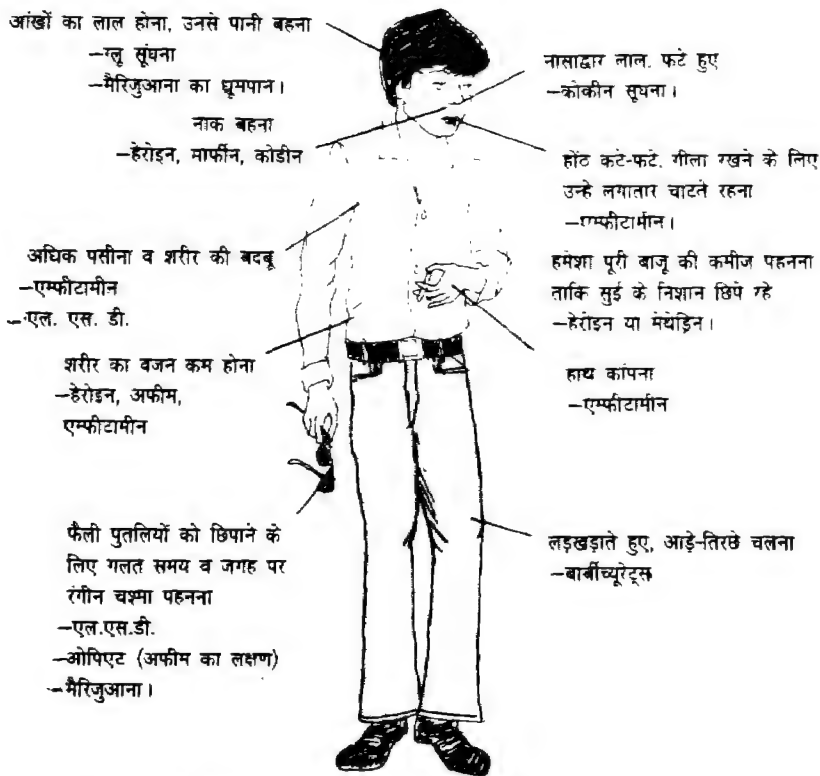 आंखों का लाल होना, उनसे पानी बहना
–ग्लू सूंघना
–मैरिजुआना का धूम्रपान।
नाक बहना
–हेरोइन, मार्फीन, कोडीन
अधिक पसीना व शरीर की बदबू
–एम्फीटामीन
–एल. एस. डी.
शरीर का वजन कम होना
–हेरोइन, अफीम,
एम्फीटामीन
फैली पुतलियों को छिपाने के
लिए गलत समय व जगह पर
रंगीन चश्मा पहनना
–एल.एस.डी.
–ओपिएट (अफीम का लक्षण)
–मैरिजुआना।
नासाद्वार लाल. फटे हुए
–कोकीन सूघना।
होंठ कटे-फटे. गीला रखने के लिए
उन्हे लगातार चाटते रहना
–एम्फीटामीन।
हमेशा पूरी बाजू की कमीज पहनना
ताकि सुई के निशान छिपे रहे
–हेरोइन या मेथेड्रिन।
हाथ कांपना
–एम्फीटामीन
लड़खड़ाते हुए, आड़े-तिरछे चलना
–बार्बीच्यूरेट्स